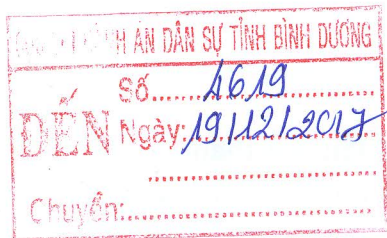 H ÁN DÂN SỰ TỈNH BÌNH DƯƠNG
ĐẾN
Số.......4619
Ngày:19/12/2017
Chuyển: